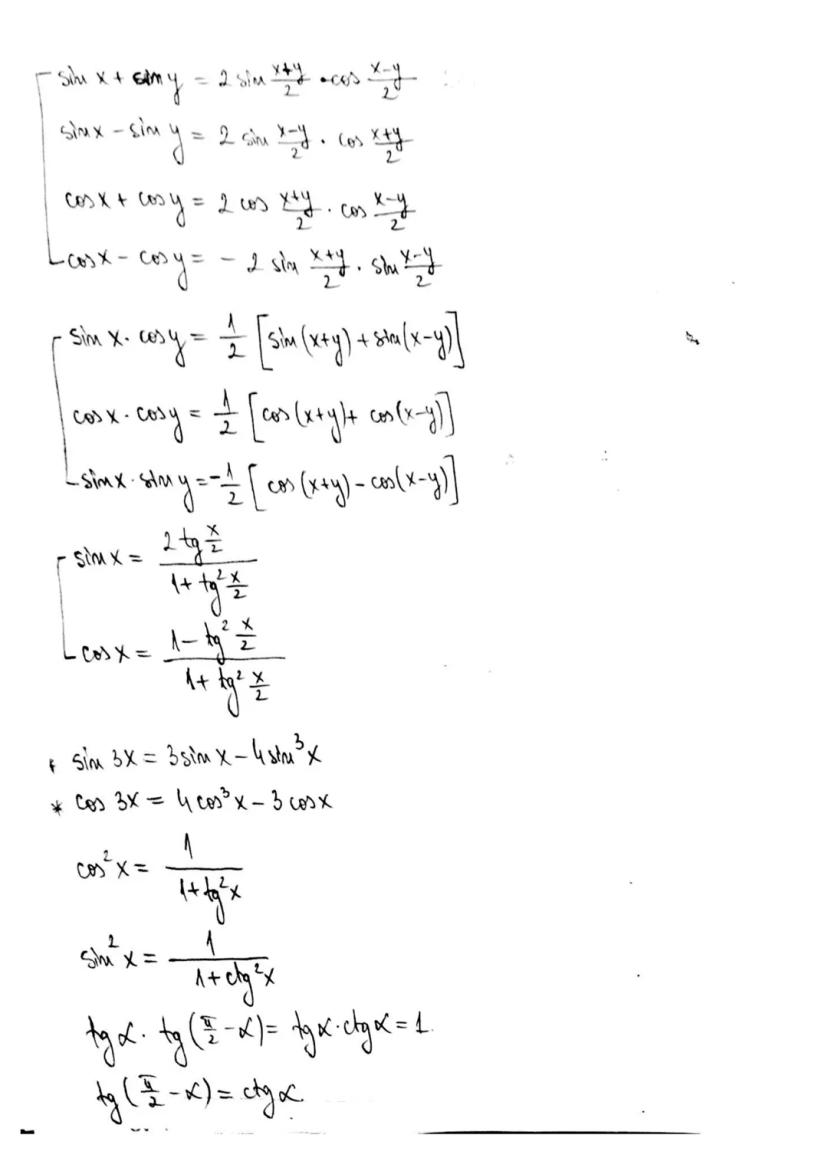 sin x + sin y = 2 sin (x+y)/2 · cos (x-y)/2
sin x - sin y = 2 sin (x-y)/2 · cos (x+y)/2
cos x + cos y = 2 cos (x+y)/2 · cos (x-y)/2
cos x - cos y = - 2 sin (x+y)/2 · sin (x-y)/2
sin x · cos y = 1/2 [sin(x+y) + sin(x-y)]
cos x · cos y = 1/2 [cos(x+y) + cos(x-y)]
sin x · sin y = -1/2 [cos(x+y) - cos(x-y)]
sin x = (2 tg x/2)/(1 + tg² x/2)
cos x = (1 - tg² x/2)/(1 + tg² x/2)
* sin 3x = 3 sin x - 4 sin³ x
* cos 3x = 4 cos³ x - 3 cos x
cos² x = 1/(1 + tg² x)
sin² x = 1/(1 + ctg² x)
tg α · tg (π/2 - α) = tg α · ctg α = 1.
tg (π/2 - α) = ctg α.